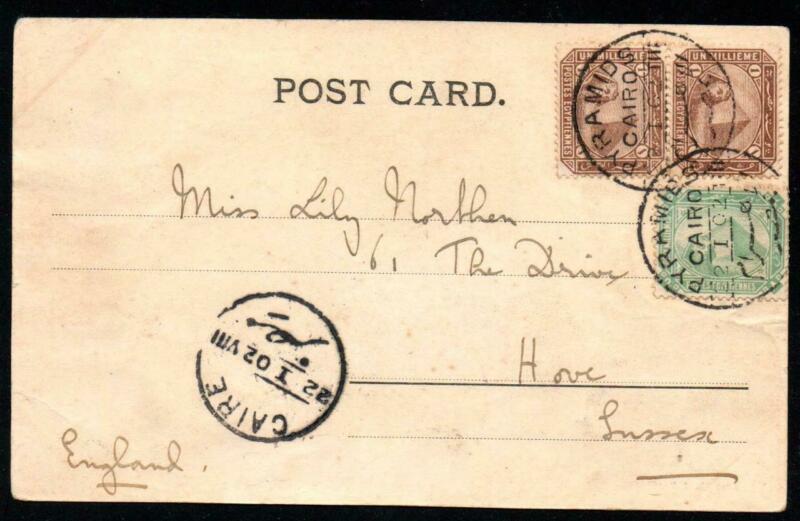 POST CARD.
UN MILLIEME
UN MILLIEME
POSTES EGYPTIENNES
PYRAMIDS
CAIRO
PYRAMIDS
CAIRO
Miss Lily Northen
61 The Drive
Hove
Sussex
England.
CAIRE
22 I 02 VIII